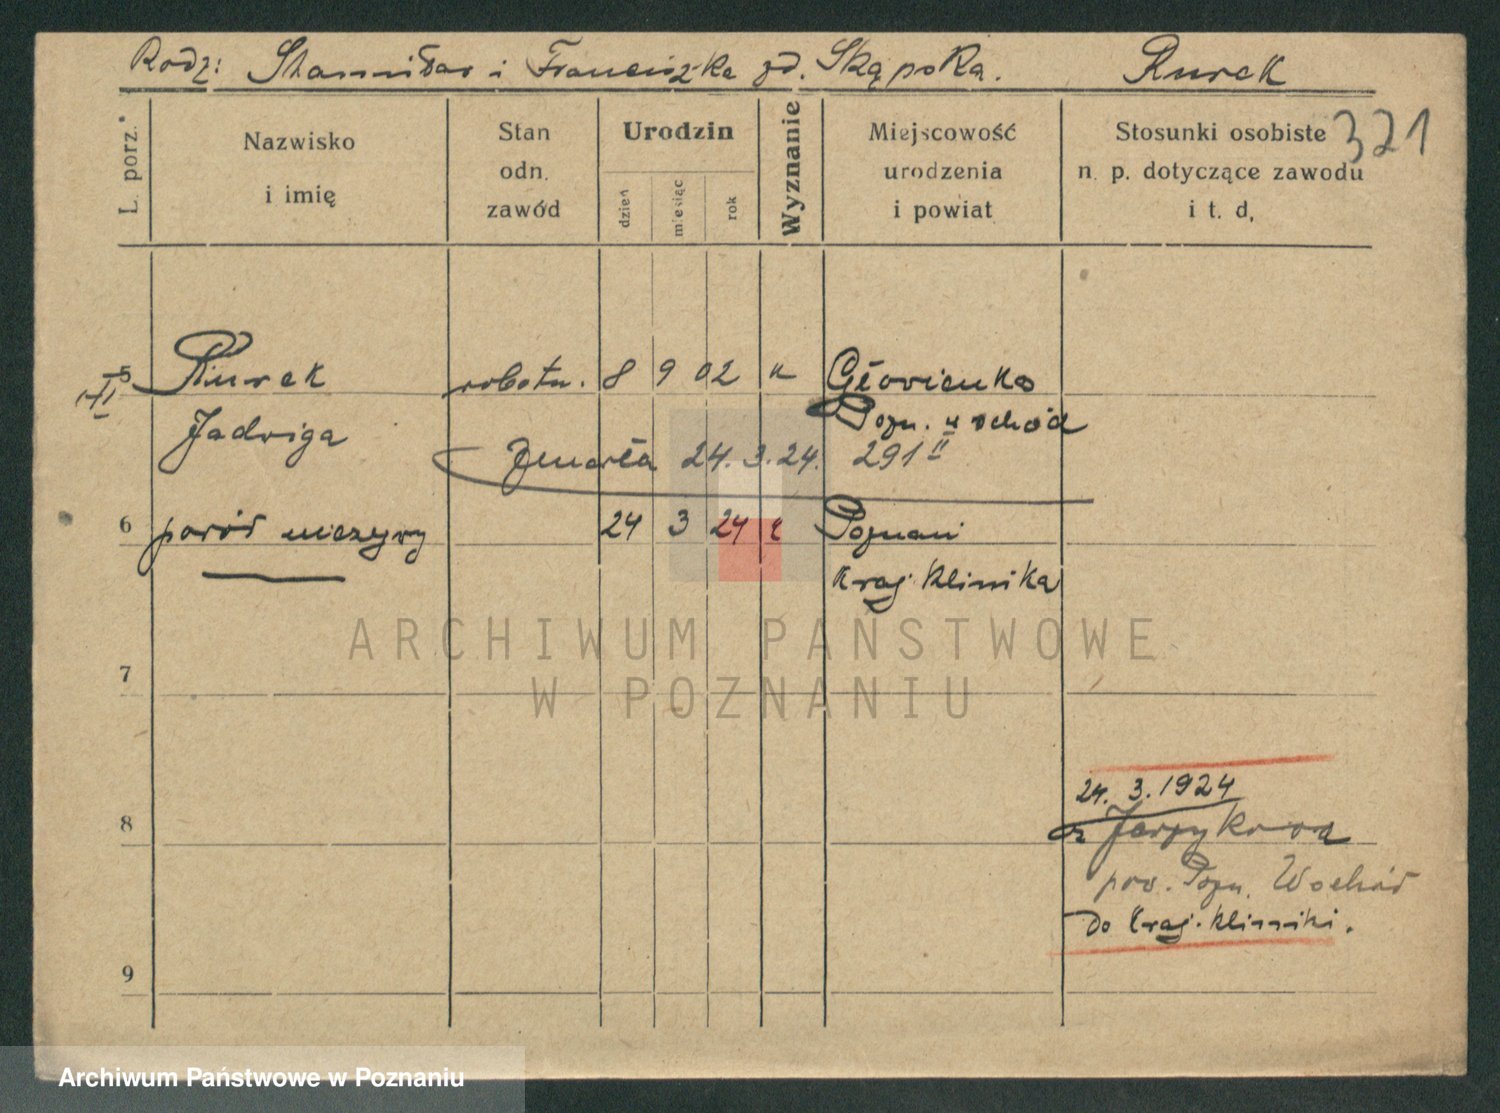 Rodz: Stanisław i Franciszka zd. Skąpska. Rurek
321
L. porz.
Nazwisko
i imię
Stan
odn.
zawód
Urodzin
dzień
miesiąc
rok
Wyznanie
Miejscowość
urodzenia
i powiat
Stosunki osobiste
n. p. dotyczące zawodu
i t. d,
5 Rurek robotn. 8 9 02 k Głowienko
Jadwiga Pozn. wschód
Zmarła 24. 3. 24. 291 II
6 poród nieżywy 24 3 24 k Poznań
Kraj. Klinika
ARCHIWUM PAŃSTWOWE
W POZNANIU
7
24. 3. 1924
8 z Jerzykowa
pow. Pozn. Wschód
do Kraj. Kliniki.
9
Archiwum Państwowe w Poznaniu